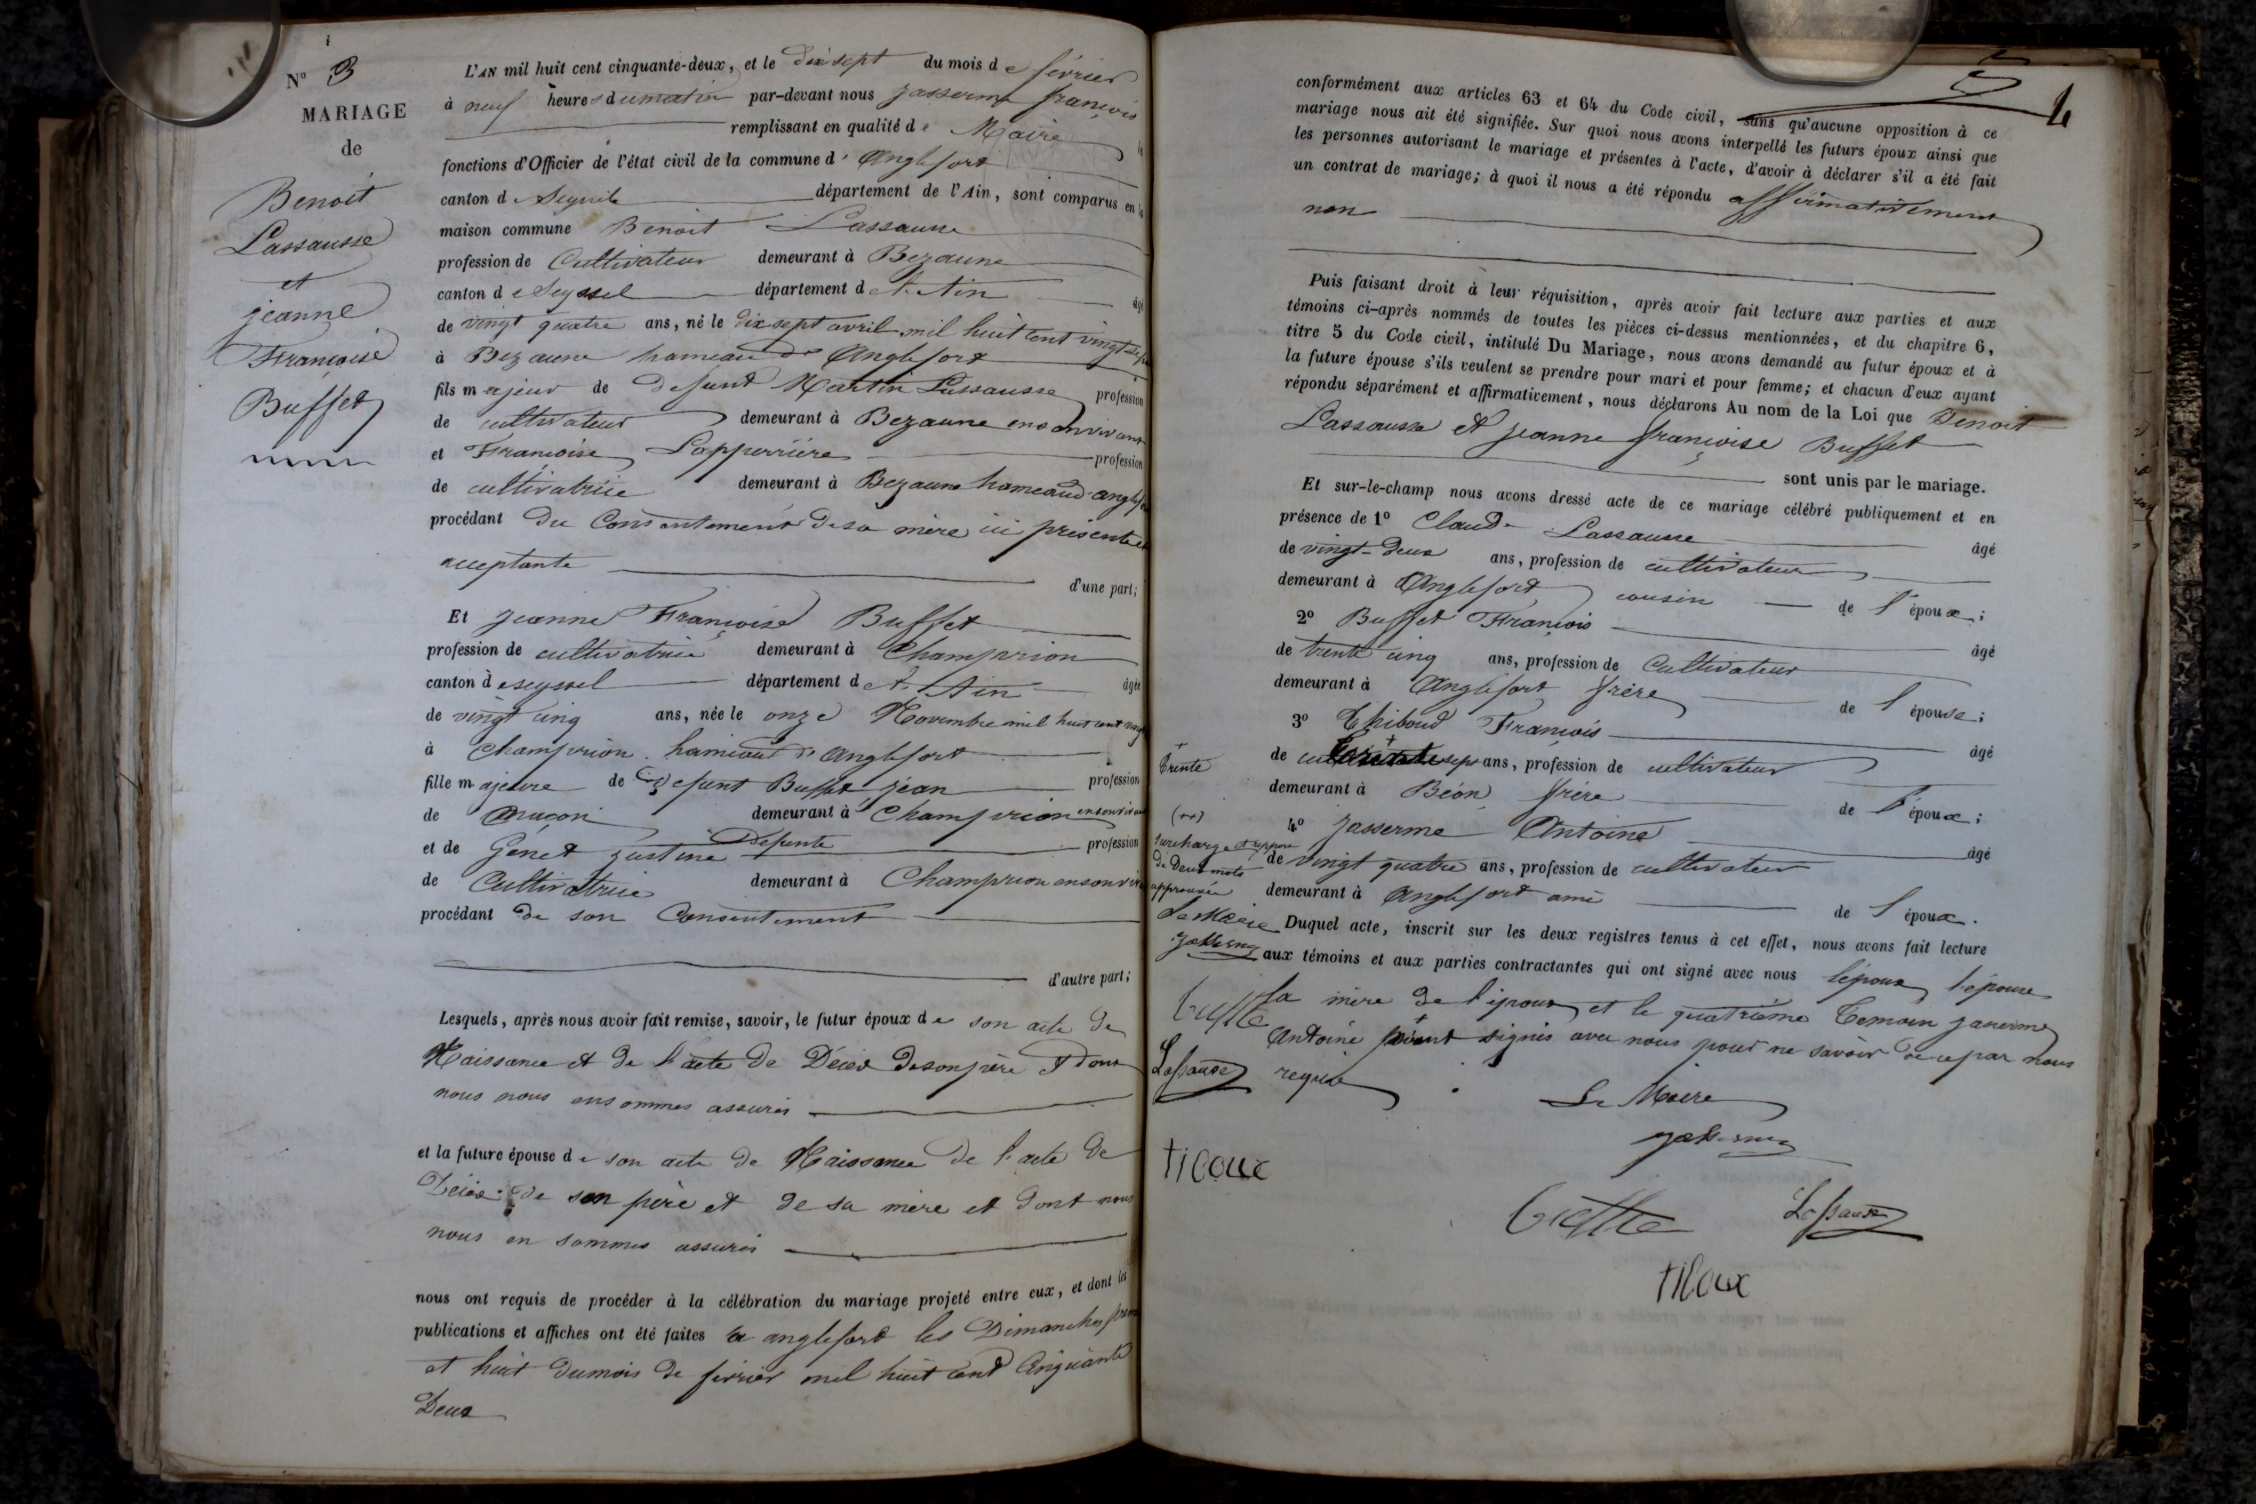 N° 3
MARIAGE
de
Benoit
Lassausse
et
jeanne
Françoise
Buffet
L'AN mil huit cent cinquante-deux, et le dix sept du mois de février
à neuf heures du matin par-devant nous Jasserme françois
remplissant en qualité de Maire
fonctions d'Officier de l'état civil de la commune d'Anglefort
canton de Seyssel département de l'Ain, sont comparus en la
maison commune Benoit Lassausse
profession de Cultivateur demeurant à Bezaune
canton de Seyssel département de l'Ain âgé
de vingt quatre ans, né le dix sept avril mil huit cent vingt
à Bezaune hameau d'Anglefort
fils majeur de defunt Martin Lassausse profession
de cultivateur demeurant à Bezaune en son vivant
et Françoise Lapperrière profession
de cultivatrice demeurant à Bezaune hameau d'anglefort
procédant du Consentement de sa mère ici présente et
acceptante d'une part;
Et jeanne Françoise Buffet
profession de cultivatrice demeurant à Champrion
canton de seyssel département de l'Ain âgée
de vingt cinq ans, née le onze Novembre mil huit cent vingt
à Champrion hameau d'anglefort
fille majeure de defunt Buffet jéan profession
de maçon demeurant à Champrion en son vivant
et de Génet justine Defunte profession
de Cultivatrice demeurant à Champrion en son vivant
procédant de son Consentement
d'autre part;
Lesquels, après nous avoir fait remise, savoir, le futur époux de son acte de
Naissance et de l'acte de Décès de son père et dont
nous nous en sommes assurés
et la future épouse de son acte de Naissance de l'acte de
Décès de son père et de sa mère et dont nous
nous en sommes assurés
nous ont requis de procéder à la célébration du mariage projeté entre eux, et dont les
publications et affiches ont été faites à anglefort les Dimanches premier
et huit du mois de février mil huit cent Cinquante
Deux
4
conformément aux articles 63 et 64 du Code civil, sans qu'aucune opposition à ce
mariage nous ait été signifiée. Sur quoi nous avons interpellé les futurs époux ainsi que
les personnes autorisant le mariage et présentes à l'acte, d'avoir à déclarer s'il a été fait
un contrat de mariage; à quoi il nous a été répondu affirmativement
non
Puis faisant droit à leur réquisition, après avoir fait lecture aux parties et aux
témoins ci-après nommés de toutes les pièces ci-dessus mentionnées, et du chapitre 6,
titre 5 du Code civil, intitulé Du Mariage, nous avons demandé au futur époux et à
la future épouse s'ils veulent se prendre pour mari et pour femme; et chacun d'eux ayant
répondu séparément et affirmativement, nous déclarons Au nom de la Loi que Benoit
Lassausse et jeanne françoise Buffet
sont unis par le mariage.
Et sur-le-champ nous avons dressé acte de ce mariage célébré publiquement et en
présence de 1° Claude Lassausse âgé
de vingt-deux ans, profession de cultivateur
demeurant à Anglefort cousin de l'époux;
2° Buffet François âgé
de trente cinq ans, profession de Cultivateur
demeurant à Anglefort frère de l'épouse;
3° Thiboud François âgé
trente
de sept ans, profession de cultivateur
demeurant à Béon frère de l'époux;
4° Jasserme Antoine âgé
de vingt quatre ans, profession de cultivateur
demeurant à Anglefort ami de l'époux.
(++)
surcharge et
de Deux mots
approuvée
Le Maire
Duquel acte, inscrit sur les deux registres tenus à cet effet, nous avons fait lecture
aux témoins et aux parties contractantes qui ont signé avec nous l'époux l'épouse
la mère de l'époux et le quatrième témoin Jasserme
Antoine signés avec nous pour ne savoir de ce par nous
requis
Lassausse
tiboux
Le Maire
Lassausse
tiboux